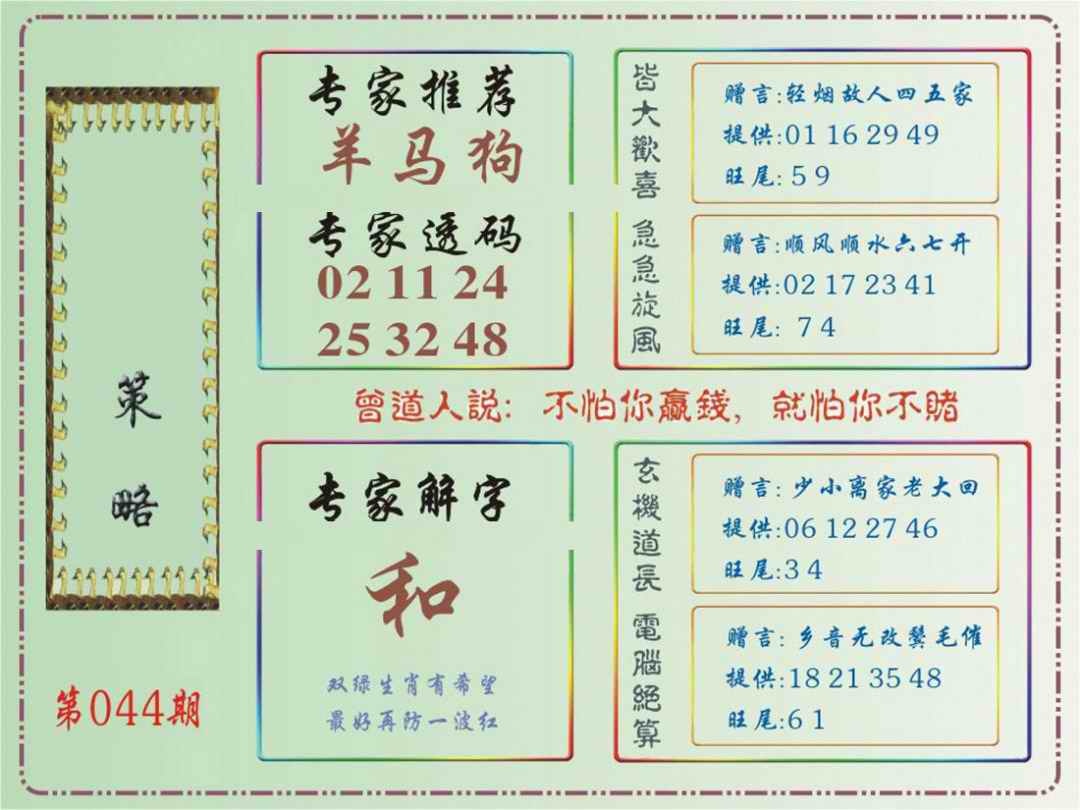 策略
第044期
专家推荐
羊马狗
专家透码
02 11 24
25 32 48
皆大歡喜
赠言:轻烟故人四五家
提供:01 16 29 49
旺尾: 5 9
急急旋風
赠言:顺风顺水六七开
提供:02 17 23 41
旺尾: 7 4
曾道人説: 不怕你贏錢, 就怕你不賭
专家解字
和
双绿生肖有希望
最好再防一波红
玄機道長
赠言: 少小离家老大回
提供:06 12 27 46
旺尾:3 4
電腦絕算
赠言: 乡音无改鬓毛催
提供:18 21 35 48
旺尾:6 1